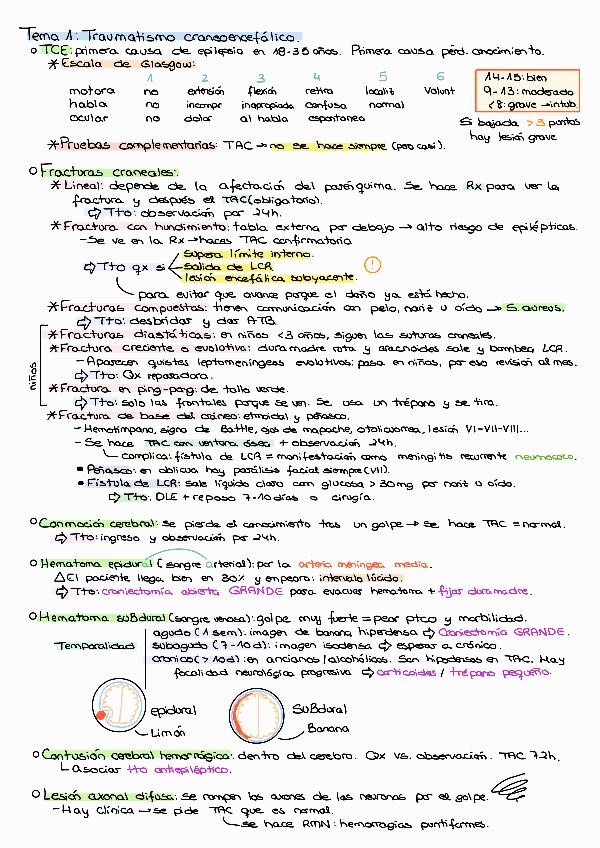 Tema 1: Traumatismo craneoencefálico.
○ TCE: primera causa de epilepsia en 18-35 años. Primera causa pérd. conocimiento.
* Escala de Glasgow:
1 2 3 4 5 6
motora no extensión flexión retira localiz Volunt
habla no incompr inapropiada confusa normal
ocular no dolor al habla espontanea
14-15: bien
9-13: moderado
<8: grave → intub
Si bajada >3 puntos
hay lesión grave
* Pruebas complementarias: TAC → no se hace siempre (pero casi).
○ Fracturas craneales:
* Lineal: depende de la afectación del parénquima. Se hace Rx para ver la
fractura y después el TAC (obligatorio).
⇨ Tto: observación por 24h.
* Fractura con hundimiento: tabla externa por debajo → alto riesgo de epilépticas.
- Se ve en la Rx → haces TAC confirmatorio
⇨ Tto qx si
supera límite interno.
salida de LCR
lesión encefálica subyacente.
!
para evitar que avance porque el daño ya está hecho.
* Fracturas compuestas: tienen comunicación con pelo, nariz u oído → S. aureus.
⇨ Tto: desbridar y dar ATB.
niños
* Fracturas diastáticas: en niños <3 años, siguen las suturas craneales.
* Fractura creciente o evolutiva: duramadre rota y aracnoides sale y bombea LCR.
- Aparecen quistes leptomeníngeos evolutivos: pasa en niños, por eso revisión al mes.
⇨ Tto: Qx reparadora.
* Fractura en ping-pong: de tallo verde.
⇨ Tto: solo las frontales porque se ven. Se usa un trépano y se tira.
* Fractura de base del cráneo: etmoidal y peñasco.
- Hemotímpano, signo de Battle, ojos de mapache, otolicuorrea, lesión VI-VII-VIII...
- Se hace TAC con ventana ósea + observación 24h.
complica: fístula de LCR = manifestación como meningitis recurrente neumococo.
• Peñasco: en oblicua hay parálisis facial siempre (VII).
• Fístula de LCR: sale líquido claro con glucosa >30mg por nariz u oído.
⇨ Tto: DLE + reposo 7-10 días o cirugía.
○ Conmoción cerebral: se pierde el conocimiento tras un golpe → se hace TAC = normal.
⇨ Tto: ingreso y observación por 24h.
○ Hematoma epidural (sangre arterial): por la arteria meníngea media.
△ El paciente llega bien en 30% y empeora: intervalo lúcido.
⇨ Tto: craniectomía abierta GRANDE para evacuar hematoma + fijar duramadre.
○ Hematoma suBdural (sangre venosa): golpe muy fuerte = peor ptco y morbilidad.
Temporalidad
agudo (1 sem): imagen de banana hiperdensa ⇨ Craniectomía GRANDE.
subagudo (7-10d): imagen isodensa ⇨ esperar a crónico.
crónico (>10d): en ancianos/alcohólicos. Son hipodensos en TAC. Hay
focalidad neurológica progresiva ⇨ corticoides / trépano pequeño.
epidural
Limón
SuBdural
Banana
○ Contusión cerebral hemorrágica: dentro del cerebro. Qx vs. observación. TAC 72h.
Asociar tto antiepiléptico.
○ Lesión axonal difusa: se rompen los axones de las neuronas por el golpe.
- Hay clínica → se pide TAC que es normal.
se hace RMN: hemorragias puntiformes.